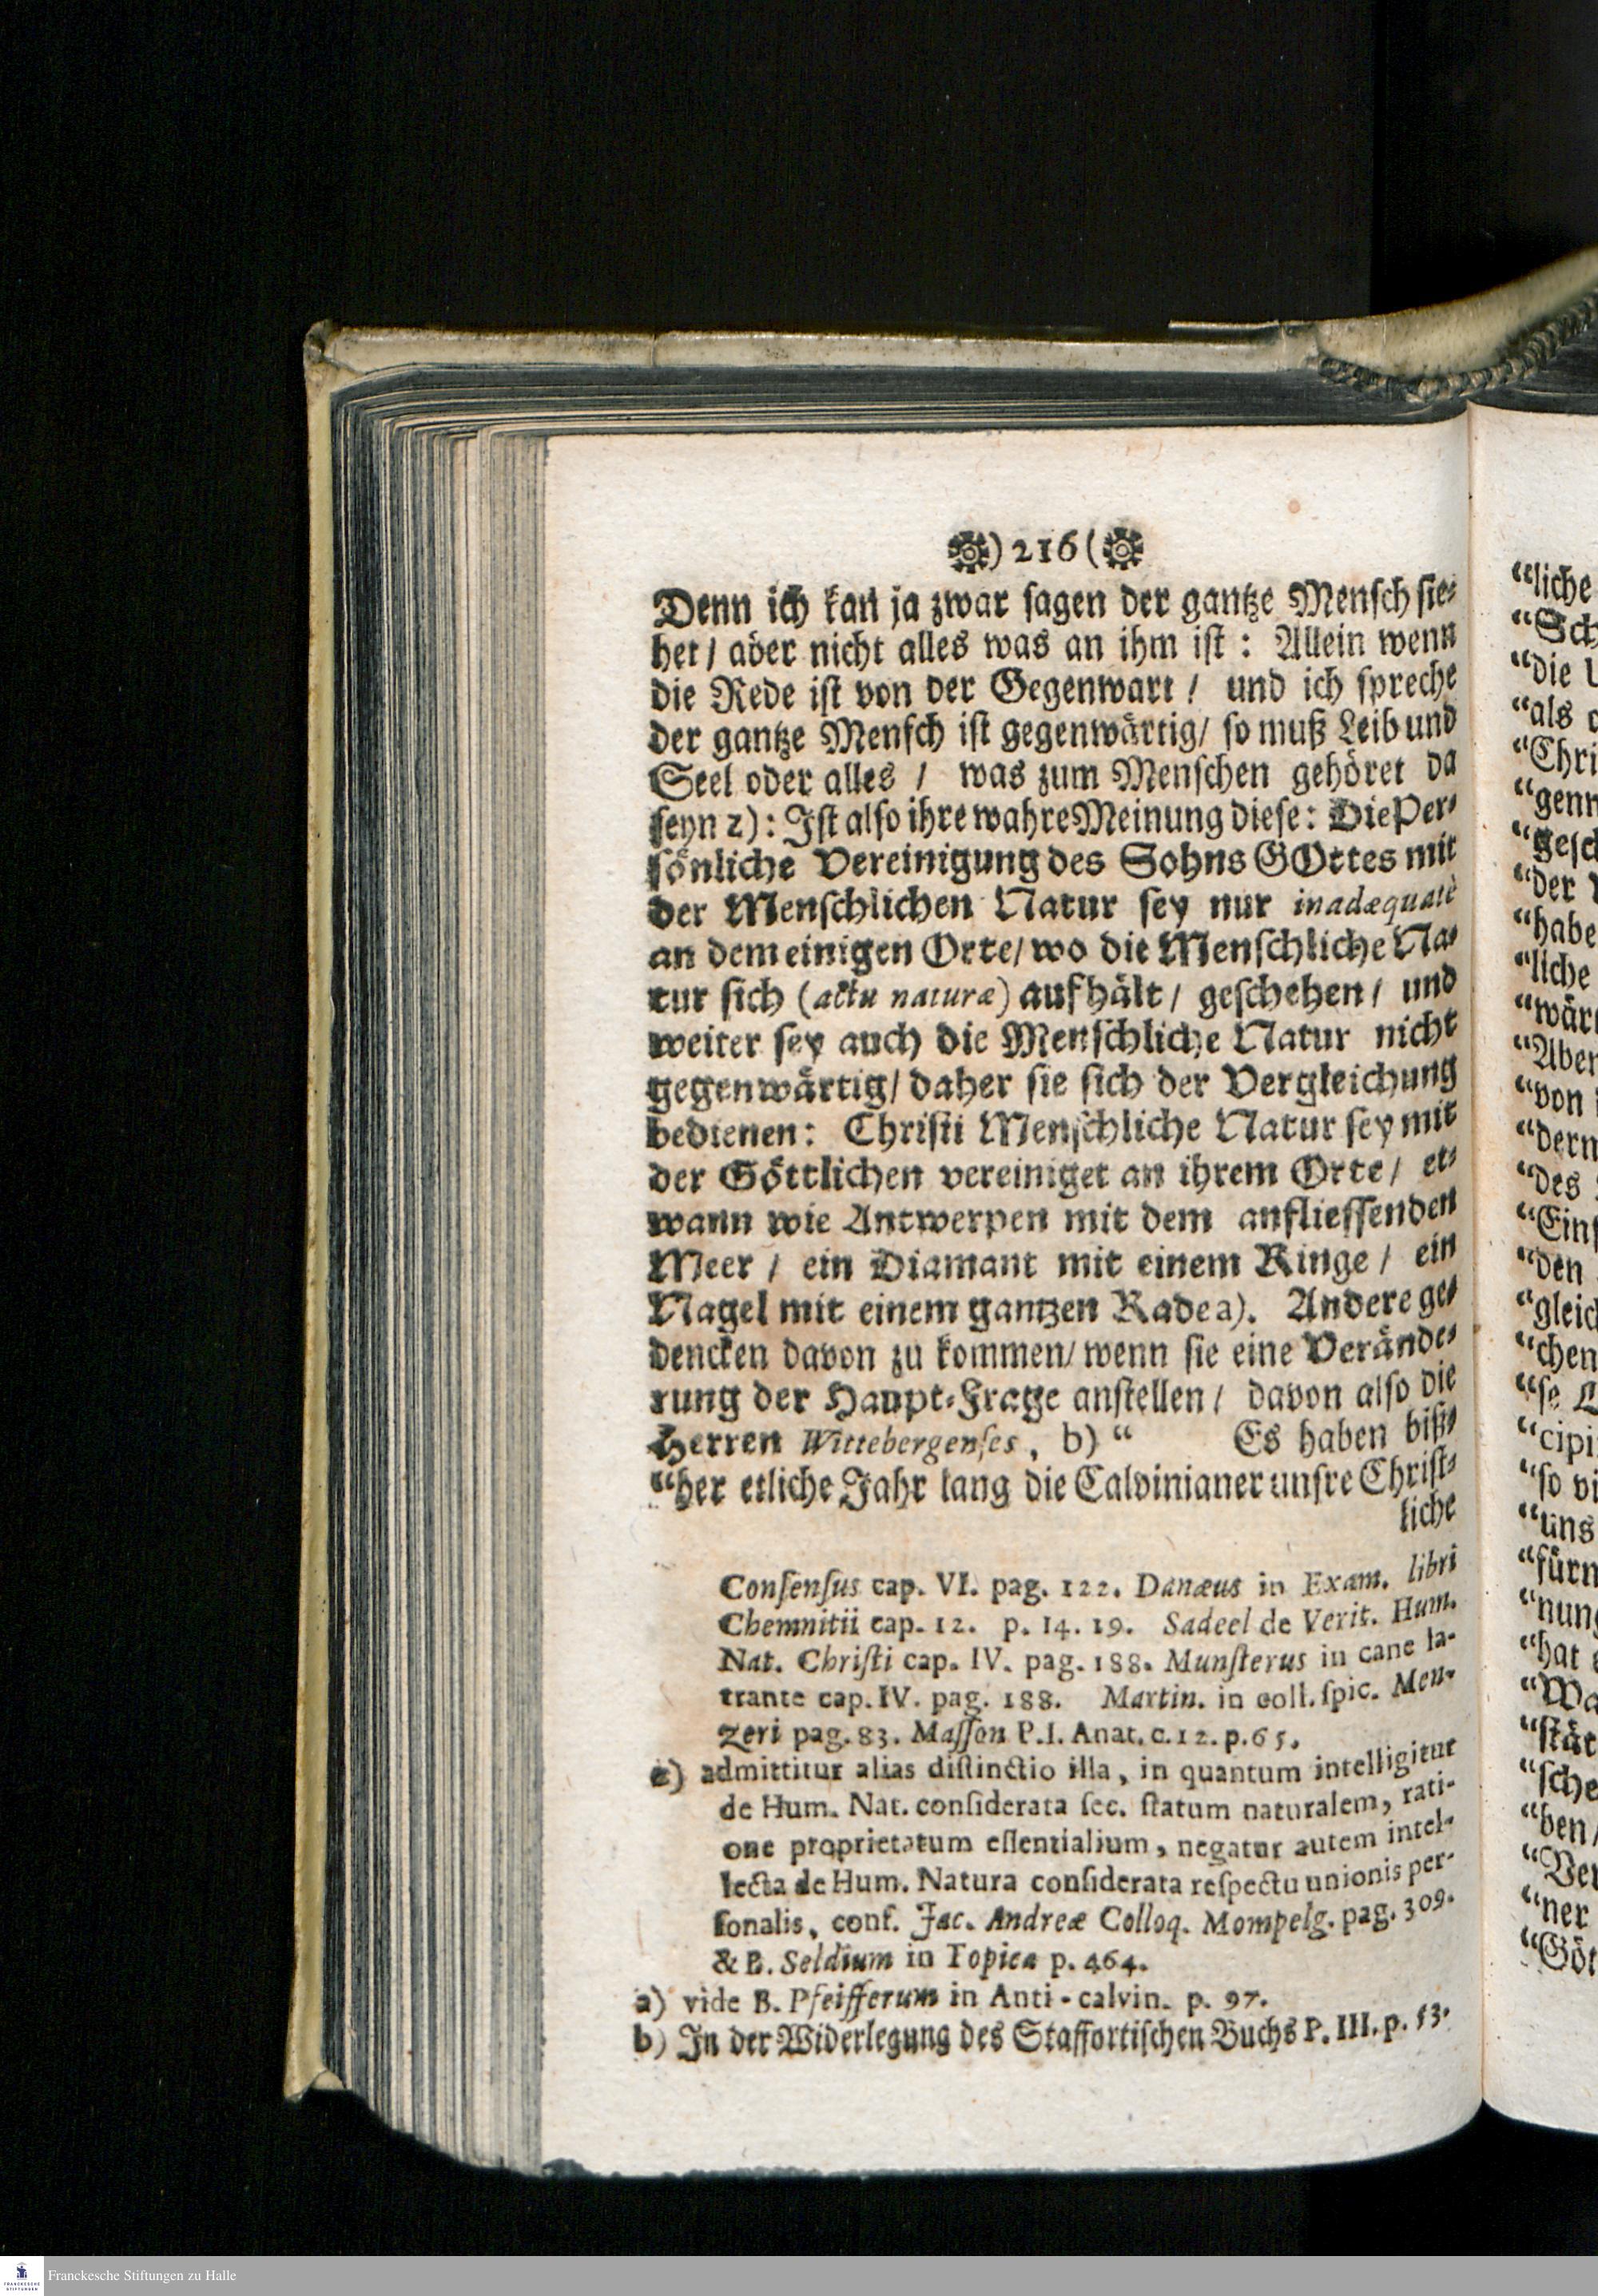 )216(
Denn ich kan ja zwar ſagen der gantze Menſch ſie⸗
het / aber nicht alles was an ihm iſt : Allein wenn
die Rede iſt von der Gegenwart / und ich ſpreche
der gantze Menſch iſt gegenwärtig/ ſo muß Leib und
Seel oder alles / was zum Menſchen gehöret da
ſeyn z): Iſt alſo ihre wahre Meinung dieſe: Die Per⸗
ſönliche Vereinigung des Sohns GOttes mit
der Menſchlichen Natur ſey nur inadæquatè
an dem einigen Orte/ wo die Menſchliche Na⸗
tur ſich (actu naturæ) aufhält / geſchehen / und
weiter ſey auch die Menſchliche Natur nicht
gegenwärtig/ daher ſie ſich der Vergleichung
bedienen: Chriſti Menſchliche Natur ſey mit
der Göttlichen vereiniget an ihrem Orte / et⸗
wann wie Antwerpen mit dem anflieſſenden
Meer / ein Diamant mit einem Ringe / ein
Nagel mit einem gantzen Rade a). Andere ge⸗
dencken davon zu kommen/ wenn ſie eine Verände⸗
rung der Haupt⸗Frage anſtellen / davon alſo die
Herren Wittebergenſes, b) “ Es haben biß⸗
“her etliche Jahr lang die Calvinianer unſre Chriſt⸗
liche
Conſenſus cap. VI. pag. 122. Danæus in Exam. libri
Chemnitii cap. 12. p. 14. 19. Sadeel de Verit. Hum.
Nat. Chriſti cap. IV. pag. 188. Munſterus in cane la-
trante cap. IV. pag. 188. Martin. in coll. ſpic. Men-
zeri pag. 83. Maſſon P. I. Anat. c. 12. p. 65.
z) admittitur alias diſtinctio illa, in quantum intelligitur
de Hum. Nat. conſiderata ſec. ſtatum naturalem, rati-
one proprietatum eſſentialium, negatur autem intel-
lecta de Hum. Natura conſiderata reſpectu unionis per-
ſonalis, conf. Jac. Andreæ Colloq. Mompelg. pag. 309.
& B. Seldium in Topica p. 464.
a) vide B. Pfeifferum in Anti-calvin. p. 97.
b) In der Widerlegung des Staffortiſchen Buchs P. III. p. 53.
“liche
“die
“als
“Chri
“genn
“geſch
“der
“habe
“liche
“wär
“Aber
“von
“dern
“des
“Einſ
“den
“gleich
“chen
“ſe
“cipi
“ſo vi
“uns
“fürn
“nung
“hat
“Wa
“ſtät
“ſche
“ben/
“Ver
“ner
“Göt
FRANCKESCHE
STIFTUNGEN
Franckesche Stiftungen zu Halle